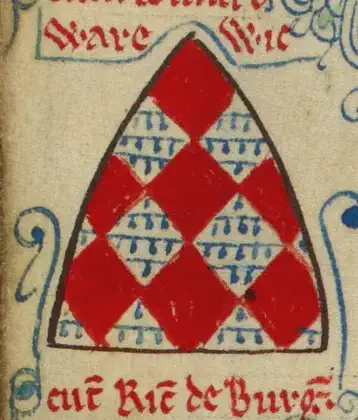 Ware Wic
cut̄ Ric̄ de Burg̃.